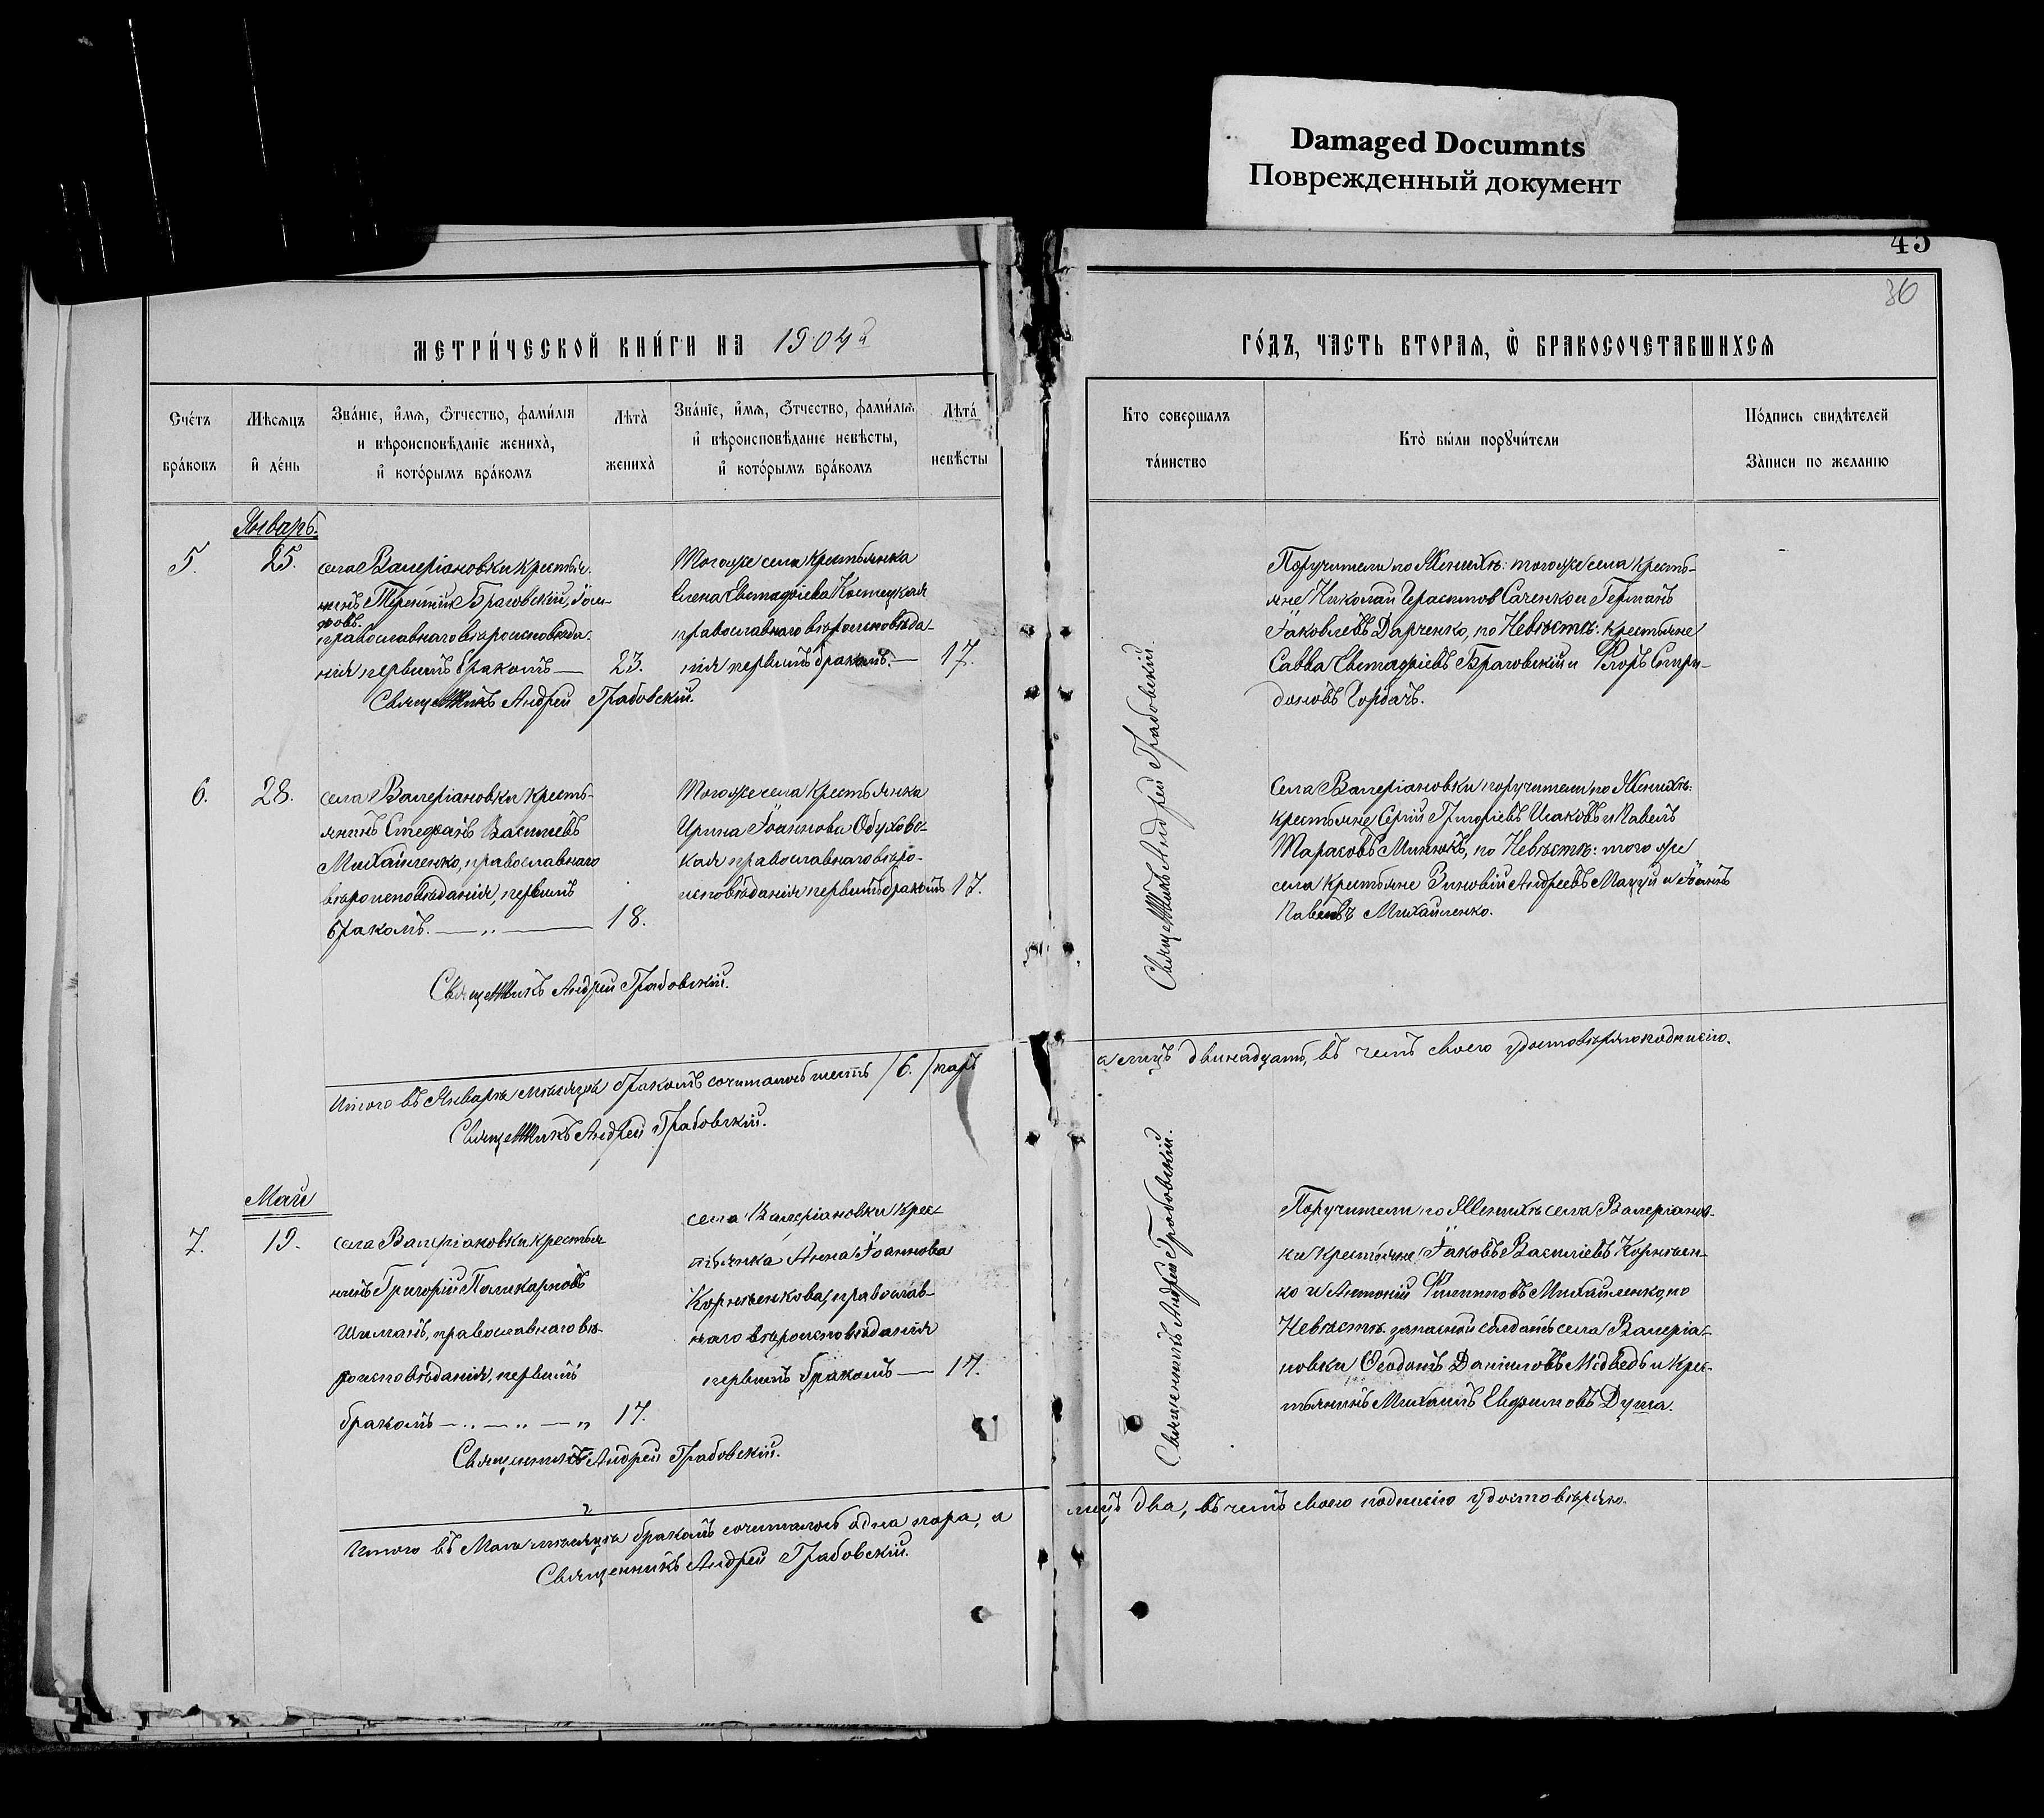 Damaged Documnts
Поврежденный документ
45
36
МЕТРИ́ЧЕСКОЙ КНИ́ГИ НА 1904й
ГО́ДЪ, ЧАСТЬ ВТОРАЯ, Ѡ БРАКОСОЧЕТАВШИХСЯ
Сче́тъ бра́ковъ
Мѣсяцъ и де́нь
Зва́нїе, и́мя, ѻтчество, фами́лїя
и вѣроисповѣ́данїе жениха̀,
и кото́рымъ бра́комъ
Лѣта̀ жениха̀
Зва́нїе, и́мя, ѻтчество, фами́лїя
и вѣроисповѣ́данїе невѣ́сты,
и кото́рымъ бра́комъ
Лѣта́ невѣ́сты
Кто совершалъ
та́инство
Кто̀ бы́ли порꙋчи́тели
По́дпись свидѣ́телей
За̀писи по желанїю
Январь.
5.
25.
села Валеріановки крестья-
нинъ Терентій Браговскій,
православнаго вѣроисповѣда-
нія первымъ бракомъ —
23.
Священникъ Андрей Грабовскій.
Тогоже села крестьянка
Елена Евстафіева Костецкая
православнаго вѣроисповѣда-
нія первымъ бракомъ. —
17.
Священникъ Андрей Грабовскій.
Поручители по Женихѣ: тогоже села кресть-
яне Николай Герасимов Саченко и Германъ
Іаковлевъ Дарченко, по Невѣстѣ: крестьяне
Савва Евстафіевъ Браговскій и Флоръ Спири-
доновъ Горбачъ.
6.
28.
села Валеріановки кресть-
янинъ Стефанъ Василіевъ
Михайленко, православнаго
вѣроисповѣданія, первымъ
бракомъ. — „ —
18.
Священникъ Андрей Грабовскій.
Тогоже села крестьянка
Ирина Іоаннова Обуховс-
кая православнаго вѣро-
исповѣданія первымъ бракомъ
17.
Села Валеріановки поручители по Женихѣ:
крестьяне Сергій Григоріевъ Исаковъ и Павелъ
Тарасовъ Минюкъ, по Невѣстѣ: того же
села крестьяне Зиновій Андреевъ Мацуй и Іоаннъ
Павловъ Михайленко.
Итого въ Январѣ мѣсяцѣ бракомъ сочиталось шесть /6./ паръ
а лицъ двѣнадцать, въ чемъ своею удостовѣряю подписью.
Священникъ Андрей Грабовскій.
Май
7.
19.
села Валеріановки крестья-
нинъ Григорій Поликарповъ
Шаманъ, православнаго вѣ-
роисповѣданія, первымъ
бракомъ — „ — „ — „
17.
Священникъ Андрей Грабовскій.
села Валеріановки крес-
тьянка Анна Іоаннова
Корнѣенкова, православ-
наго вѣроисповѣданія
первымъ бракомъ —
17.
Священникъ Андрей Грабовскій.
Поручители по Женихѣ села Валеріанов-
ки крестьяне: Іаковъ Василіевъ Корнѣен-
ко и Антоній Филипповъ Михайленко, по
Невѣстѣ: запасной солдатъ села Валеріа-
новки Ѳеодотъ Даніиловъ Медведь и крес-
тьянинъ Михаилъ Евфимовъ Душа.
Итого въ Маѣ мѣсяцѣ бракомъ сочиталось одна пара, а
лицъ два, въ чемъ своею подписью удостовѣряю.
Священникъ Андрей Грабовскій.